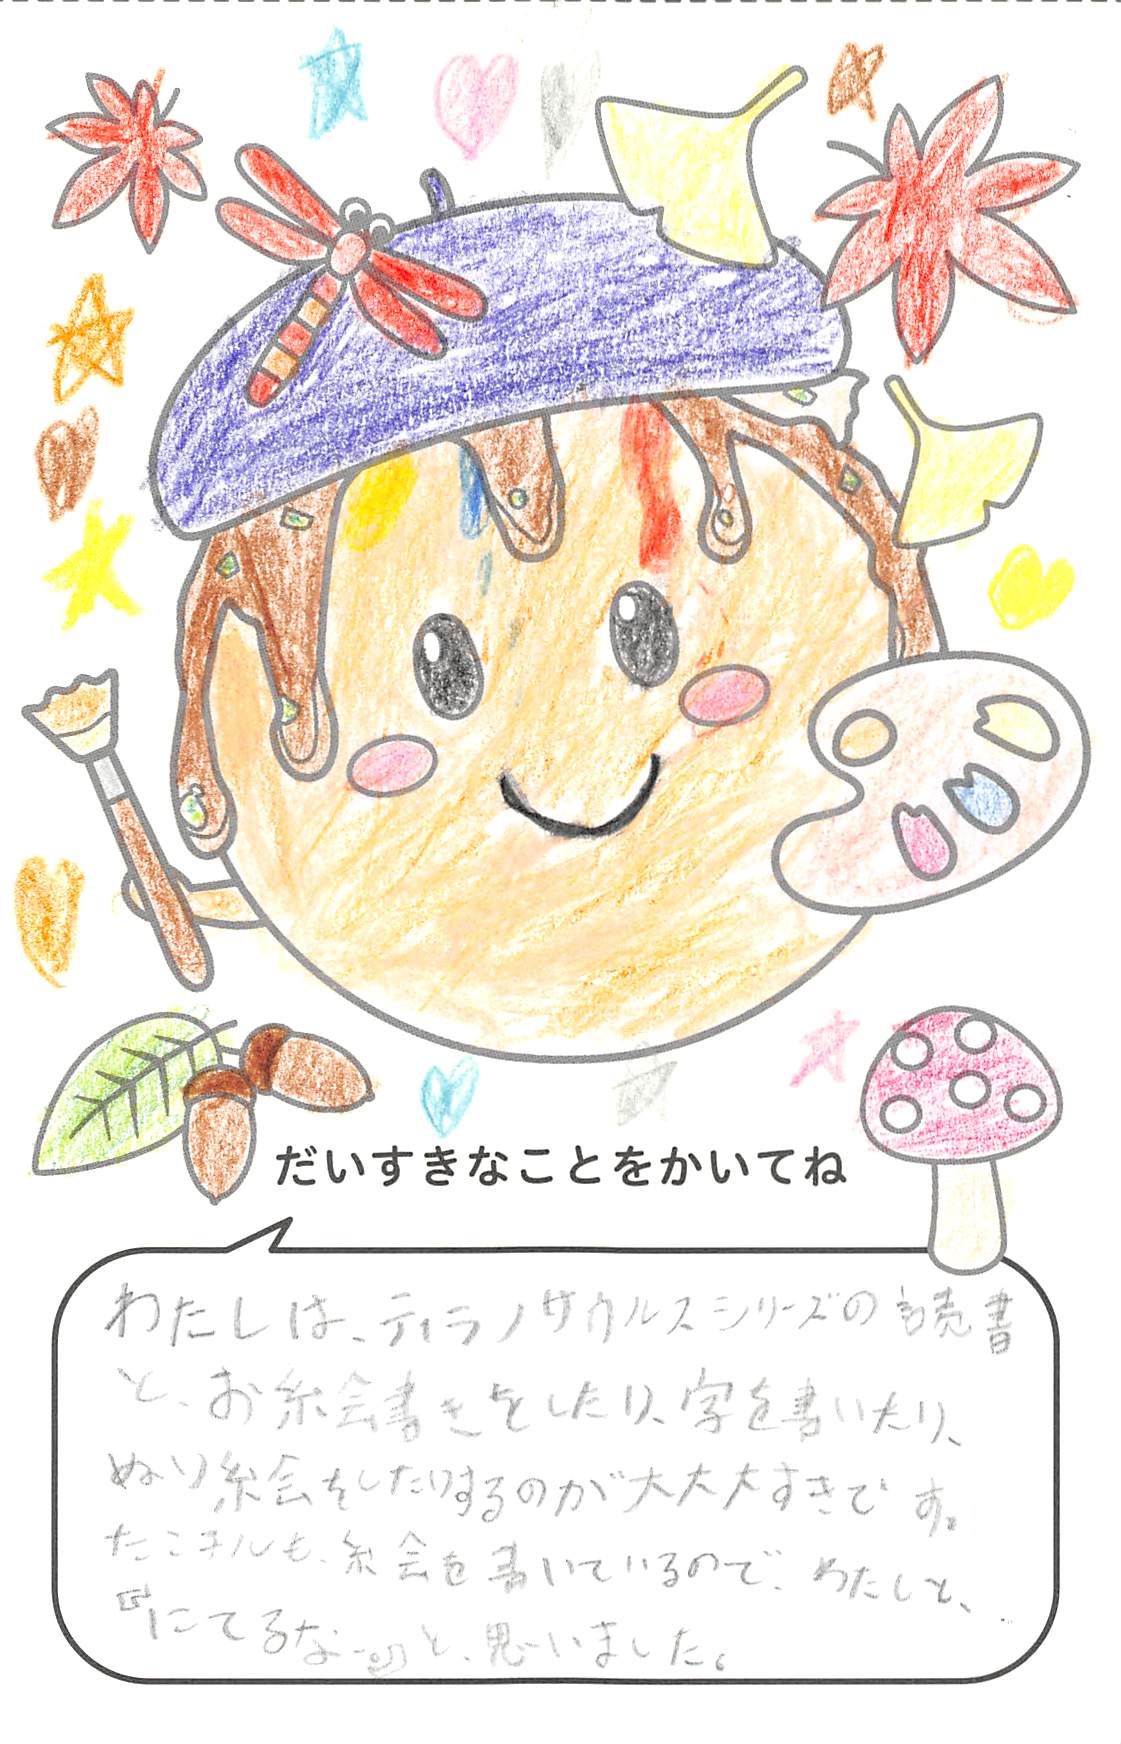 だいすきなことをかいてね
わたしは、ティラノサウルスシリーズの読書
と、お絵書きをしたり、字を書いたり、
ぬり絵をしたりするのが大大大すきです。
たこまるも、絵を書いているので、わたしと、
『にてるなー。』と、思いました。